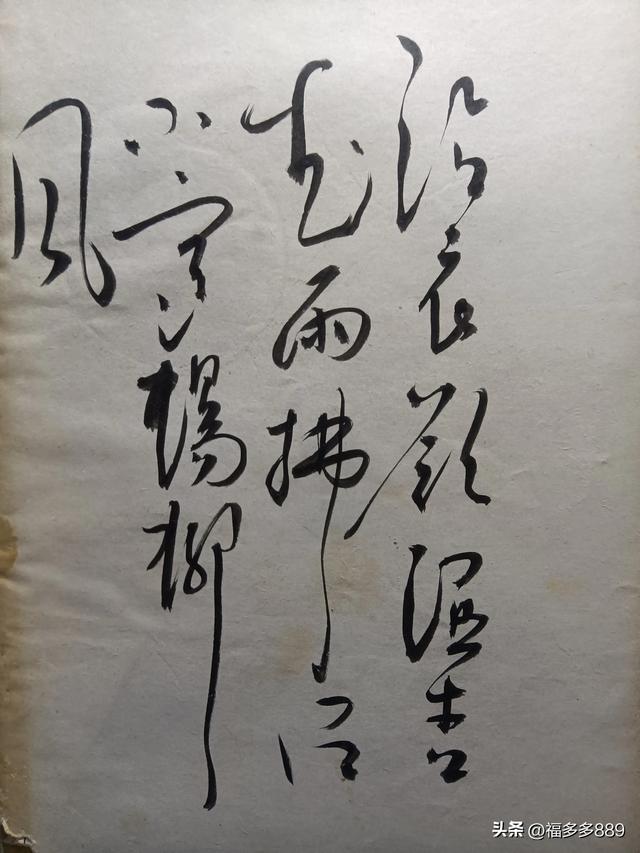 沾衣欲湿杏
花雨拂面
不寒楊柳
風
头条 @福多多889